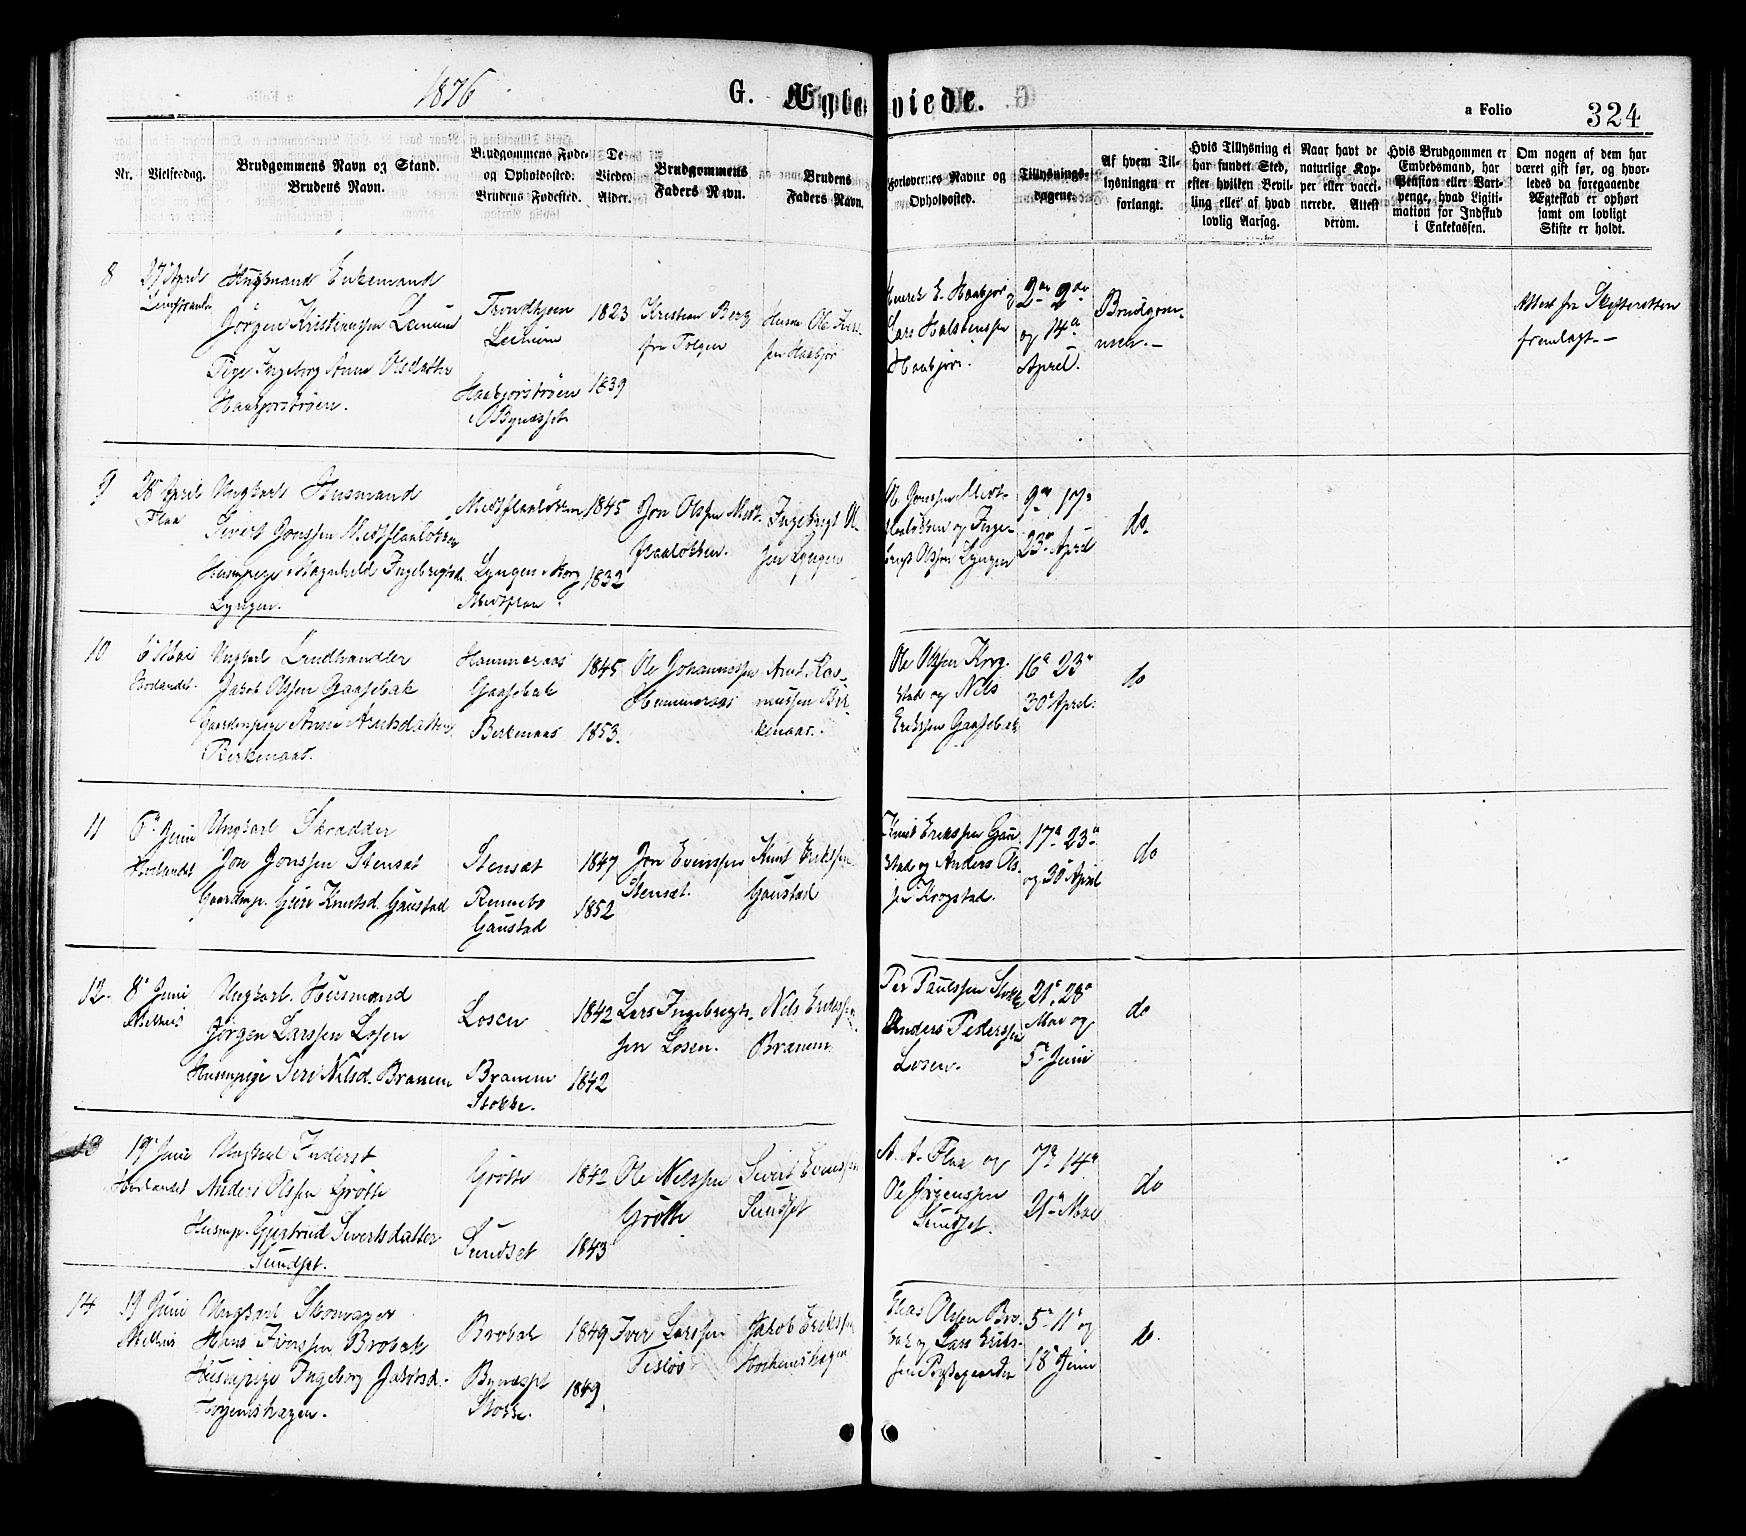 1876
G. Ægteviede.
a Folio
324
Nr.
Vielsesdag.
Brudgommens Navn og Stand.
Brudens Navn.
Brudgommens Føde-
og Opholdssted:
Brudens Fødested.
De
Viedes
Alder.
Brudgommens
Faders Navn.
Brudens
Faders Navn.
Forlovernes Navne og
Opholdssted.
Tillysnings-
dagene.
Af hvem Til-
lysningen er
forlangt.
Hvis Tillysning ei
har fundet Sted,
efter hvilken Bevil-
ling eller af hvad
lovlig Aarsag.
Naar havt de
naturlige Kop-
per eller vacci-
nerede. Attest
derom.
Hvis Brudgommen er
Embedsmand, har
Pension eller Vart-
penge, hvad Ligiti-
mation for Indskud
i Enkekassen.
Om nogen af dem har
været gift før, og hvor-
ledes da foregaaende
Ægteskab er ophørt
samt om lovligt
Skifte er holdt.
8
27 April
Leinstrand
Husmand Enkemand
Jörgen Kristiansen Leinum
Pige Ingeborg Anna Olsdatter
Haabjorströen.
Trondhjem
Leinum
Haabjorströen
Bynesset
1823
1839
Kristian Berg
fra Tolgen
Husm Ole Iver-
sen Haabjör
Henrik E. Haabjör og
Lars Halstensen
Haabjör.
2den 9de
og 14de
April.
Brudgom-
men.-
Attest fra Skifteretten
fremlagt.-
9
28 April
Flaa
Ungkarl Husmand
Sivert Jonssen Midtflaaløkken
Huspige Magnhild Ingebrigtsd.
Lyngen.
Midtflaaløkken
Lyngen
Midtflaa
1845
1832
Jon Olssen Midt-
flaaløkken.
Ingebrigt Ol-
sen Lyngen
Ole Jonssen Midt-
flaaløkken og Inge-
brigt Olssen Lyngen
9de 17de
23de April
do
10
6 Mai
Horlandet.
Ungkarl Landhandler
Jakob Olssen Gaasebak
Gaardmpige Anne Arntsdatter
Birkenaas.
Hammeraas
Gaasebak
Birkenaas
1845
1853.
Ole Johannessen
Hammeraas
Arnt Ras-
mussen Bir-
kenaas.
Ole Olssen Krog-
stad og Nils
Erikssen Gaasebak
16de 23de
30te April.
do
11
6te Juni
Horlandet
Ungkarl Skrædder
Jon Jonssen Stensæt
Gaardmp. Guri Knutsd. Gaustad
Stensæt
Rennebo
Gaustad
1847
1852
Jon Evenssen
Stensæt.
Knut Erikssen
Gaustad
Knut Erikssen Gau-
stad og Anders Ols-
sen Krogstad.
17de 23de
og 30 April
do
12.
8de Juni
Melhus
Ungkarl. Husmand
Jörgen Larssen Losen
Husmpige Siri Nilsd. Branem
Losen
Branem
Stokke.
1842
1842
Lars Ingebrigt-
sen Losen.
Nils Erikssen
Branem
Per Paulssen Stokke
Anders Pederssen
Losen.
21de 28de
Mai og
5te Juni
do
13
19de Juni
Horlandet
Ungkarl Inderst
Anders Olssen Grötte
Husmp. Gjertrud Sivertsdatter
Sundset.
Grötte
Sundset
1842
1843
Ole Nilssen
Grötte
Sivert Evenssen
Sundset
A. A. Flaa og
Ole Jörgenssen
Sundset.
7de 14de
21de Mai
do
14
19 Juni
Melhus
Ungkarl Skomager
Hans Iverssen Brobak
Huspige Ingeborg Jakobsd.
Brobak
Bynesset
Stokke.
1849
1849
Iver Larssen
Jakob Erikssen
Elias Olssen Bro-
bak og Lars Eriks-
sen
5te 11te og
18de Juni
do.